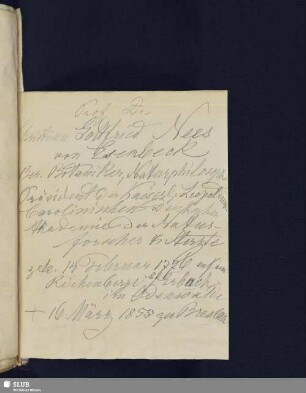 Prof. Dr.
Gottfried Nees
von Esenbeck
Ber. Botaniker, Naturphilosoph
Präsident der Kaiserl. Leopold.
Carolinischen Deutschen
Akademie der Natur-
forscher u. Ärzte
geb. 14 Februar 1776 auf
Reichenberg Erbach
im Odenwalde
+ 16 März 1858 zu Breslau
SLUB